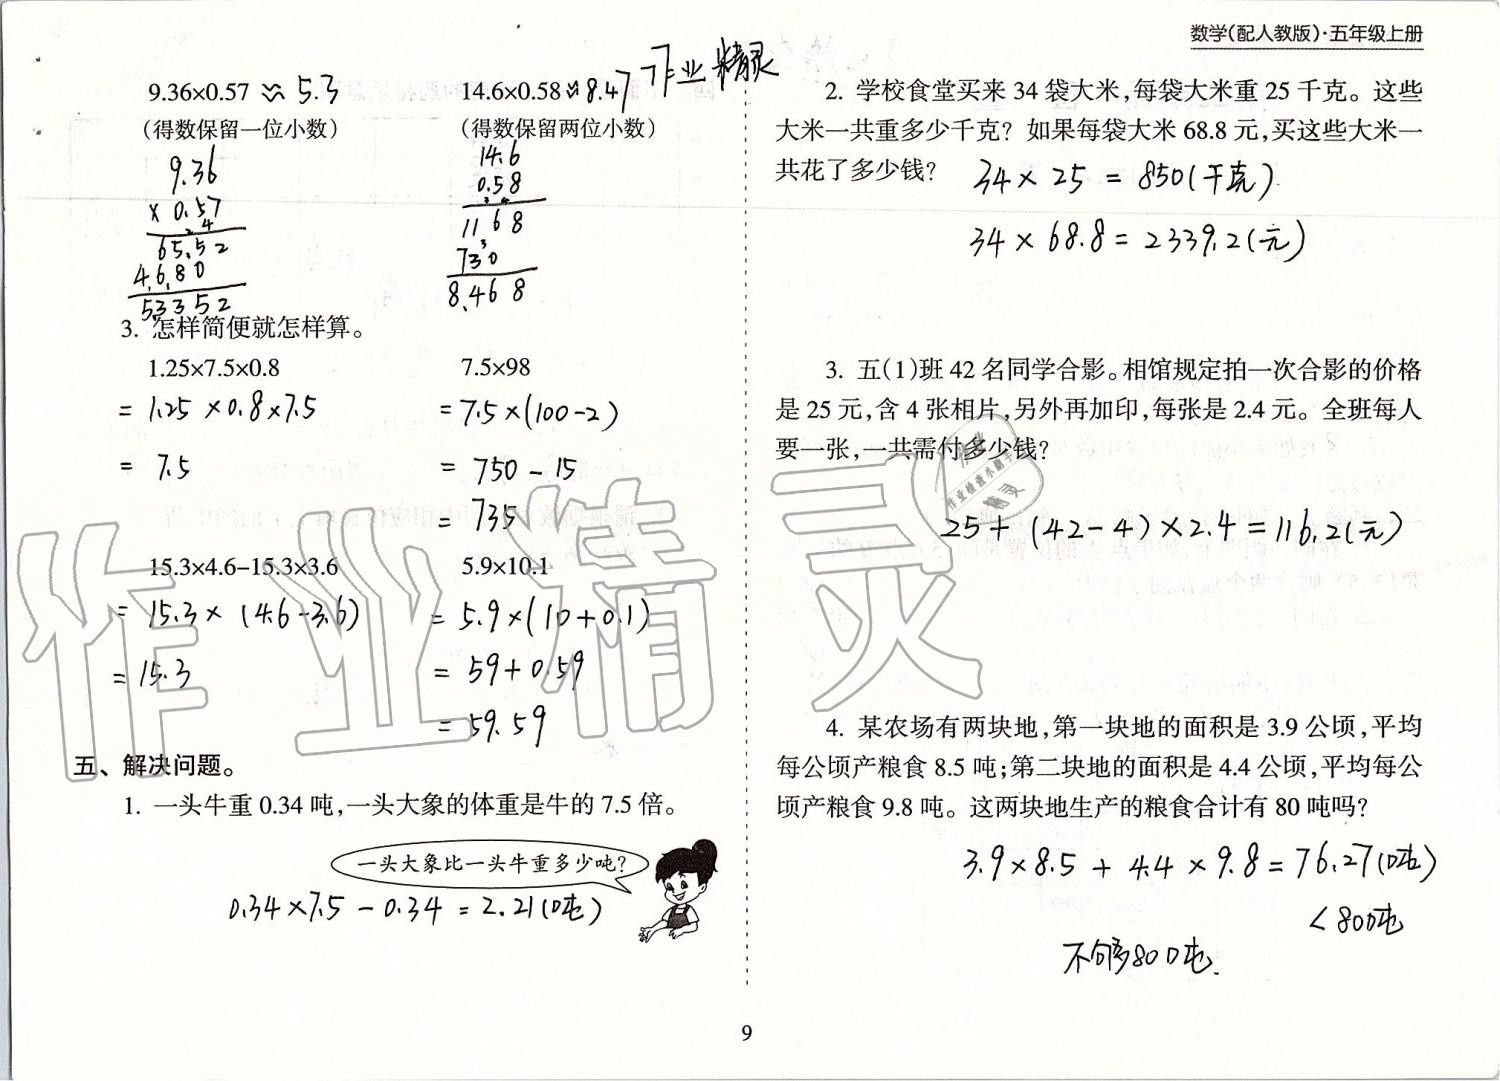 数学(配人教版)·五年级上册
9.36×0.57 ≈ 5.3
(得数保留一位小数)
9.36
× 0.57
65.52
4.680
53352
14.6×0.58 ≈ 8.47 作业精灵
(得数保留两位小数)
14.6
0.58
1168
730
8.468
3. 怎样简便就怎样算。
1.25×7.5×0.8
= 1.25×0.8×7.5
= 7.5
7.5×98
= 7.5×(100-2)
= 750-15
= 735
15.3×4.6-15.3×3.6
= 15.3×(4.6-3.6)
= 15.3
5.9×10.1
= 5.9×(10+0.1)
= 59+0.59
= 59.59
五、解决问题。
1. 一头牛重 0.34 吨,一头大象的体重是牛的 7.5 倍。
一头大象比一头牛重多少吨?
0.34×7.5-0.34=2.21(吨)
2. 学校食堂买来 34 袋大米,每袋大米重 25 千克。这些
大米一共重多少千克? 如果每袋大米 68.8 元,买这些大米一
共花了多少钱?
34×25=850(千克)
34×68.8=2339.2(元)
3. 五(1)班 42 名同学合影。相馆规定拍一次合影的价格
是 25 元,含 4 张相片,另外再加印,每张是 2.4 元。全班每人
要一张,一共需付多少钱?
25+(42-4)×2.4=116.2(元)
4. 某农场有两块地,第一块地的面积是 3.9 公顷,平均
每公顷产粮食 8.5 吨;第二块地的面积是 4.4 公顷,平均每公
顷产粮食 9.8 吨。这两块地生产的粮食合计有 80 吨吗?
3.9×8.5+4.4×9.8=76.27(吨)
<80吨
不够80吨.
作业精灵
9